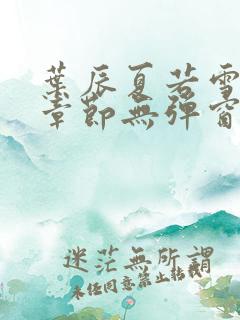 葉辰夏若雪
章節無彈窗
迷茫無所謂
未任同意禁止轉載